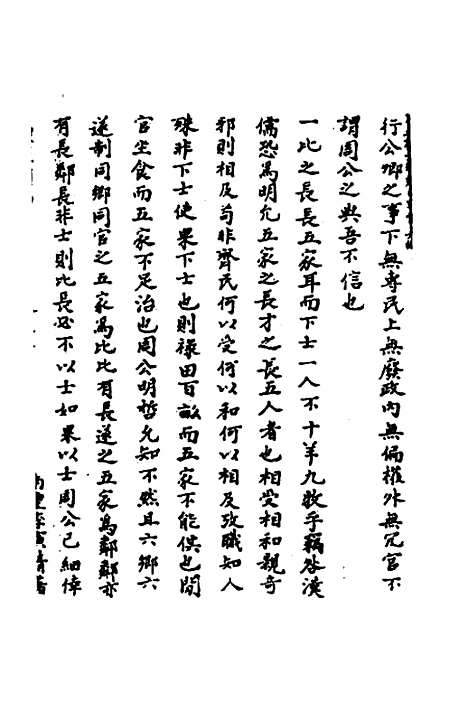 行公卿之事下無專民上無廢政内無偏權外無冗官不
謂周公之典吾不信也
一比之長長五家耳而下士一人不十羊九牧乎竊咎漢
儒恐爲明允五家之長才之長五人者也相受相和親奇
邪則相及苟非齊民何以受何以和何以相及攷職知人
殊非下士使果下士也則祿田百畝而五家不能供也閒
官坐食而五家不足治也周公明哲允知不然且六鄉六
遂制同鄉同官之五家爲比比有長遂之五家爲鄰鄰亦
有長鄰長非士則比長必不以士如果以士周公已細倖